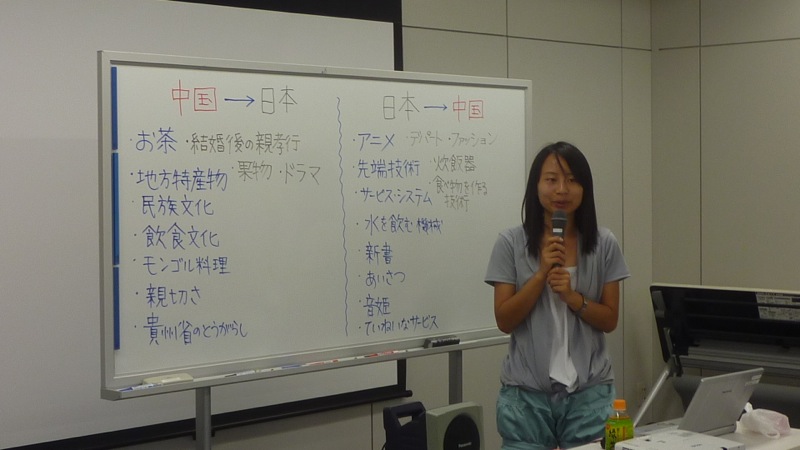 中国→日本
・お茶 ・結婚後の親孝行
・地方特産物 ・果物・ドラマ
・民族文化
・飲食文化
・モンゴル料理
・親切さ
・貴州省のとうがらし
日本→中国
・アニメ ・デパート・ファッション
・先端技術 ・炊飯器
・サービス・システム ・食べ物を作る
技術
・水を飲む機械
・新書
・あいさつ
・音姫
・ていねいなサービス
Panasonic